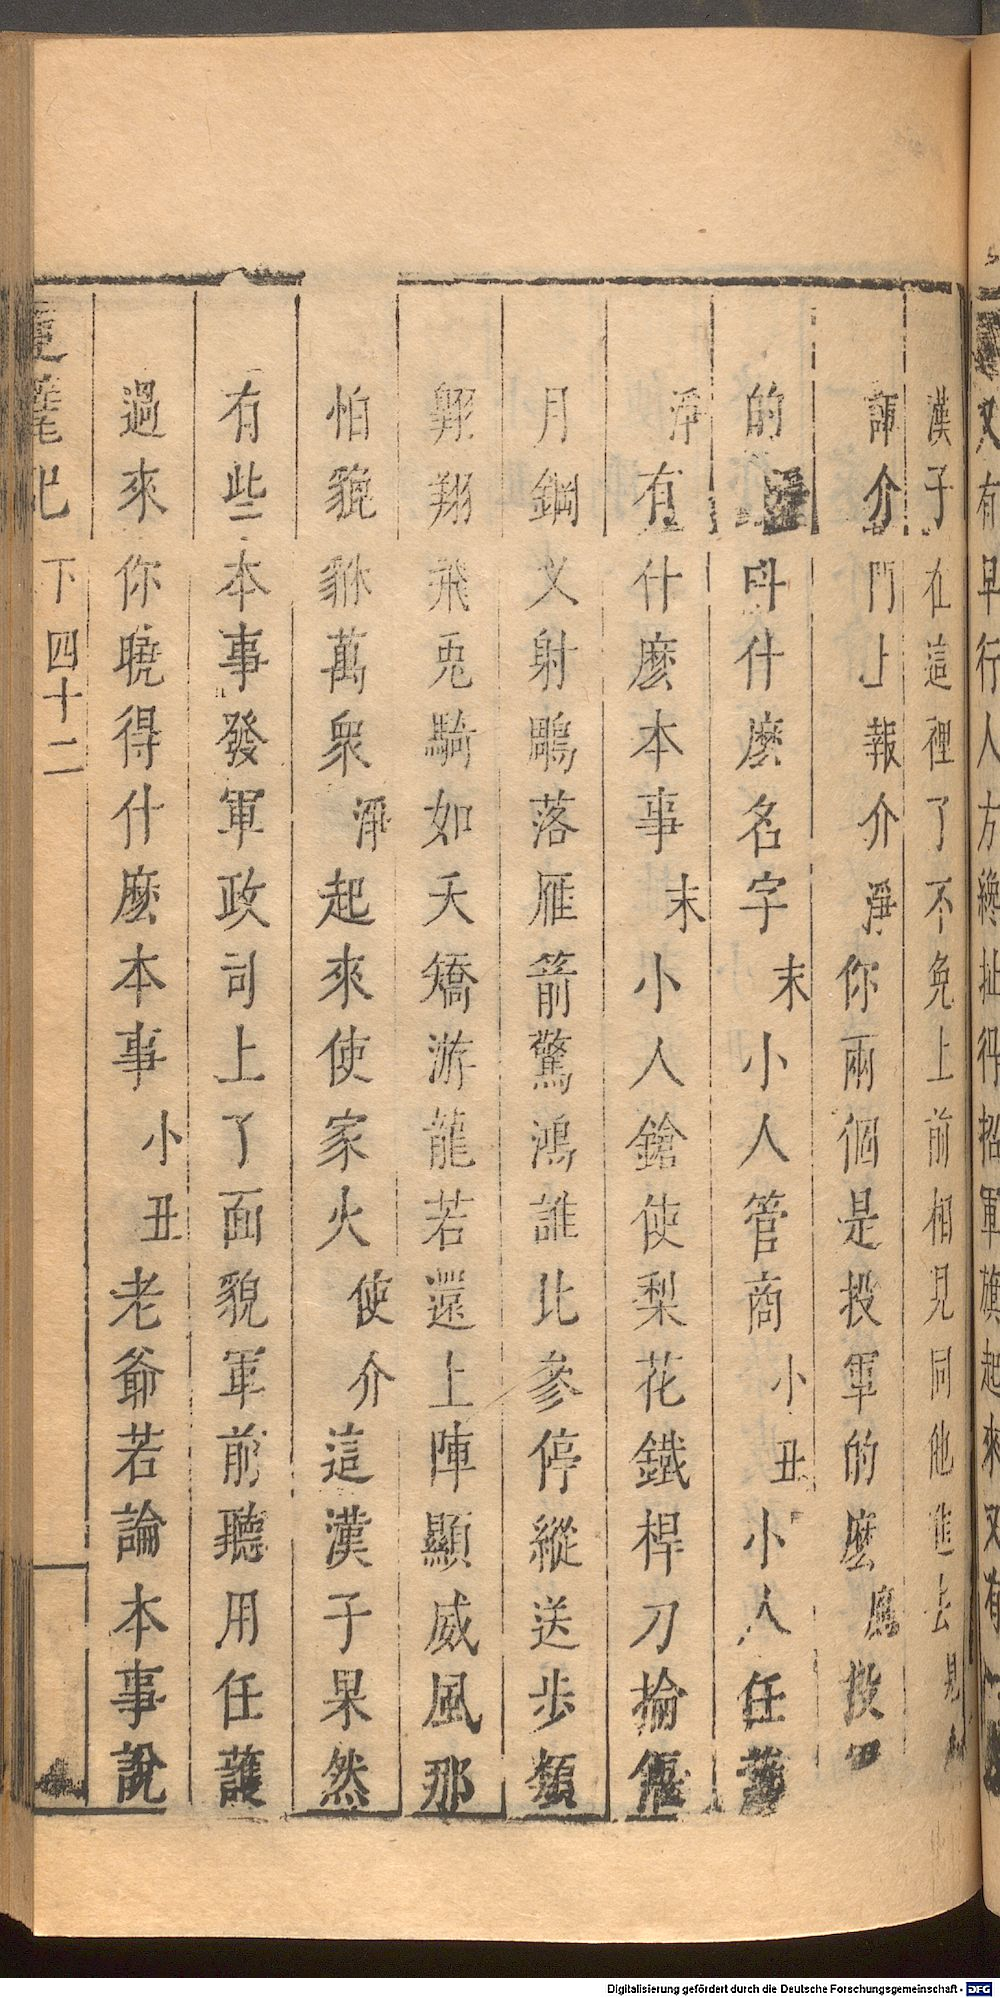 又有早行人方纔扯得招軍旗起來又有一
漢子在這裡了不免上前相見同他進去見
諢介門上報介淨你兩個是投軍的麽應投
的淨叫什麽名字末小人管商小丑小人任
淨有什麽本事末小人鎗使梨花鐵桿刀掄偃
月鋼叉射鵰落雁箭驚鴻誰比參停縱送步類
翺翔飛兎騎如夭矯游龍若還上陣顯威風那
怕貔貅萬衆淨起來使家火使介這漢子果然
有些本事發軍政司上了面貌軍前聽用任蒦
過來你曉得什麽本事小丑老爺若論本事說
雙雄記 下 四十二
Digitalisierung gefördert durch die Deutsche Forschungsgemeinschaft - DFG